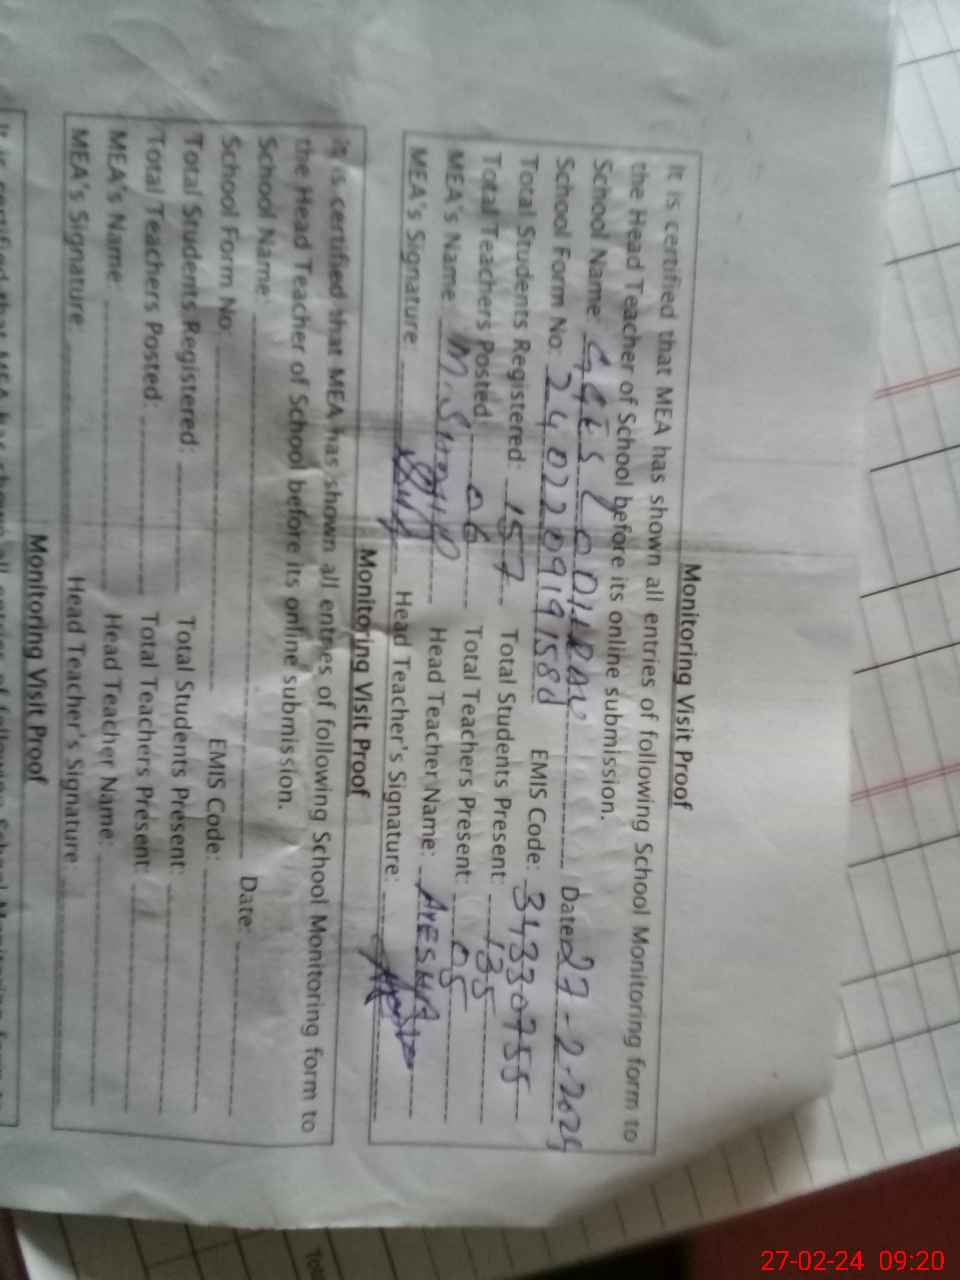 Monitoring Visit Proof
It is certified that MEA has shown all entries of following School Monitoring form to
the Head Teacher of School before its online submission.
School Name: Date: 27-2-2024
School Form No: 240220919158d EMIS Code: 34330755
Total Students Registered: 157 Total Students Present: 135
Total Teachers Posted: 06 Total Teachers Present: 05
MEA's Name: M. SHOAIB Head Teacher Name: AYESHA
MEA's Signature: Head Teacher's Signature:
Monitoring Visit Proof
It is certified that MEA has shown all entries of following School Monitoring form to
the Head Teacher of School before its online submission.
School Name: Date:
School Form No: EMIS Code:
Total Students Registered: Total Students Present:
Total Teachers Posted: Total Teachers Present:
MEA's Name: Head Teacher Name:
MEA's Signature: Head Teacher's Signature:
Monitoring Visit Proof
It is certified that MEA has shown all entries of following School Monitoring form to
27-02-24 09:20